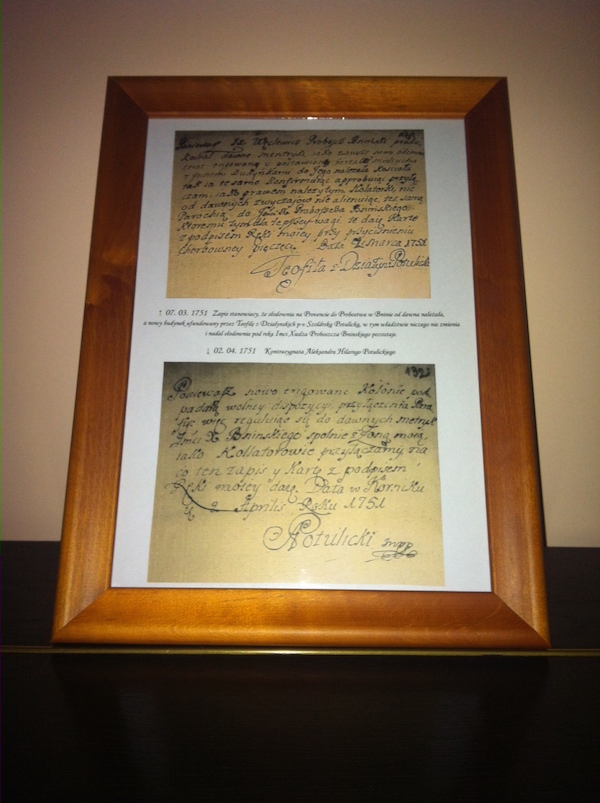 Ponieważ Ix Węclewicz Proboszcz Bninski
dawne mentryki, iako zawsze
z Panem do Jego należała Kościoła
tak ia te same Konfirmuiąc approbuię przyłą
czam, iako prawem należytym Kolatorki, nic
od dawnych zwyczaiow nie alienuiąc, tęż samą
Parochią, do Proboszcza Bninskiego
Ktoremu tym dla lepszey wagi, tę daię Kartę
z podpisem Ręki moiey przy przyciśnieniu
cherbowney pieczęci. Data 1751
Teofila z Działyna Potulicki
↑ 07. 03. 1751 Zapis stanowiący, że słodownia na Prowencie do Probostwa w Bninie od dawna należała,
a nowy budynek ufundowany przez Teofilę z Działyńskich p-v. Szołdrską Potulicką, w tym władztwie niczego nie zmienia
i nadal słodownia pod ręką Imci Xiędza Proboszcza Bnińskiego pozostaje.
↓ 02. 04. 1751 Kontrasygnata Aleksandra Hilarego Potulickiego
1323
Ponieważ nowo erigowane Kolonie pod
padaią wolney dispozycyi, przyłączenia Para
się więc reguluiąc się do dawnych metryk
Jmci X Bninskiego spolnie z Zoną moią
iako Kollatorowie przyłączamy na
co ten zapis y Kartę z podpisem
Ręki moiey daię. Data w Korniku
2 Aprilis Roku 1751
APotulicki mpp